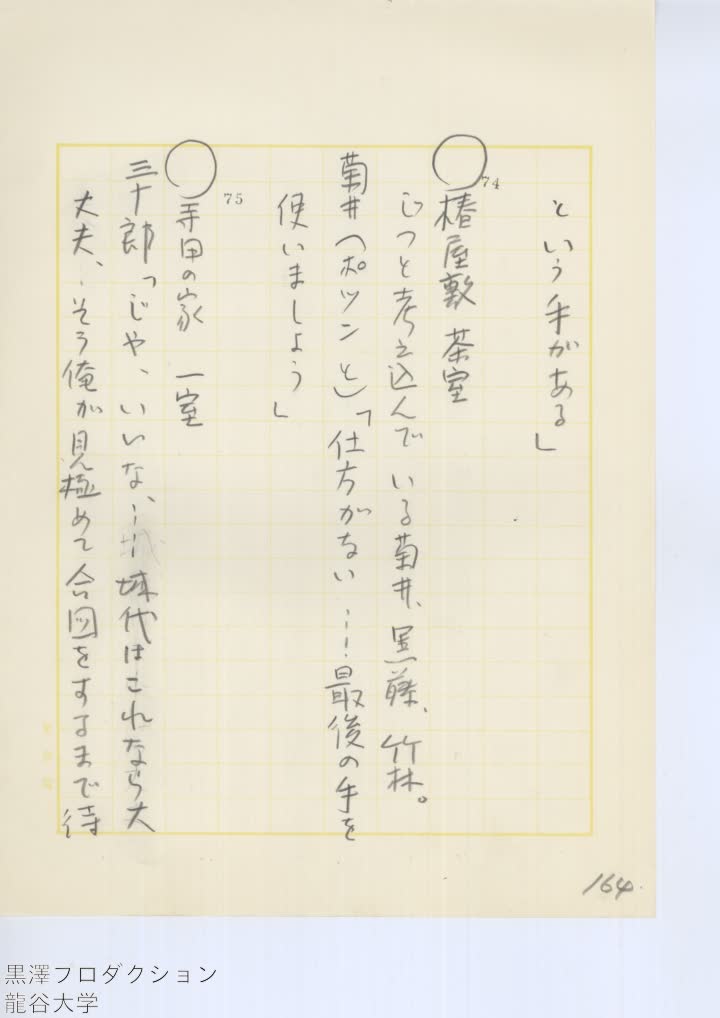 という手がある」
○74 椿屋敷 茶室
じっと考え込んでいる菊井、黒藤、竹林。
菊井（ポツンと）「仕方がない……最後の手を
使いましょう」
○75 寺田の家 一室
三十郎「じゃ、いいな、……城代はこれなら大
丈夫、…そう俺が見極めて合図をするまで待
164.
黒澤プロダクション
龍谷大学